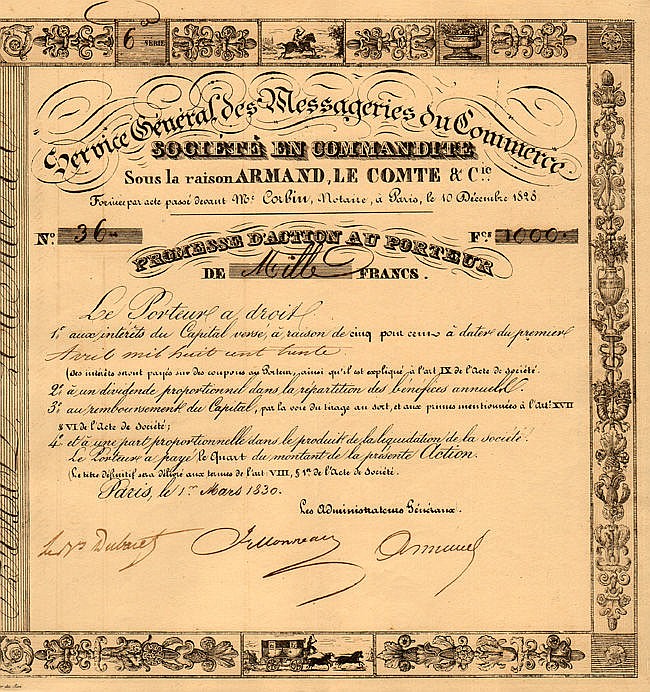 6 SÉRIE
Service Général des Messageries du Commerce
SOCIÉTÉ EN COMMANDITE
Sous la raison ARMAND, LE COMTE & Cie
Formée par acte passé devant Me Corbin, Notaire, à Paris, le 10 Décembre 1828
No 36 Fcs 1000
PROMESSE D'ACTION AU PORTEUR
DE Mille FRANCS.
Le Porteur a droit
1o aux intérêts du Capital versé, à raison de cinq pour cent à dater du premier
Avril mil huit cent trente
(Ces intérêts seront payés sur des coupons au Porteur, ainsi qu'il est expliqué à l'art IX de l'Acte de Société.
2o à un dividende proportionnel dans la répartition des bénéfices annuels
3o au remboursement du Capital, par la voie du tirage au sort, et aux primes mentionnées à l'Art. XVII
§ VI de l'Acte de Société;
4o et à une part proportionnelle dans le produit de la liquidation de la société.
Le Porteur a payé le Quart du montant de la présente Action.
(Le titre définitif sera délivré aux termes de l'art VIII, § 1er de l'Acte de Société.
Paris, le 1er Mars 1830.
Les Administrateurs Généraux.